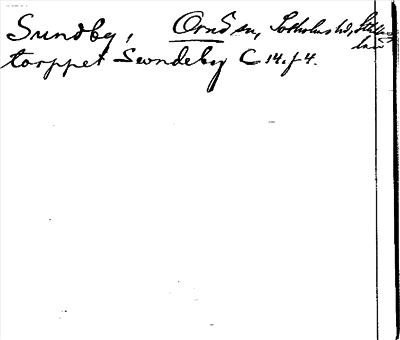 Sundby, Ornö sn, Sotholms hd, Sthlms län
torppet Swndeby C 14 f 4.